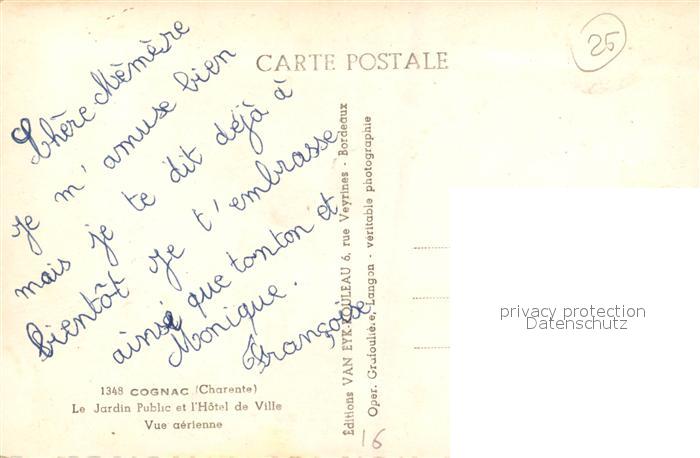 CARTE POSTALE
25
Chère Mémère
je m'amuse bien
mais je te dit déjà à
bientôt je t'embrasse
ainsi que tonton et
Monique.
Françoise
1348 COGNAC (Charente)
Le Jardin Public et l'Hôtel de Ville
Vue aérienne
Éditions VAN EYK-ROULEAU 6, rue Veyrines - Bordeaux
Oper. Langon - véritable photographie
16
privacy protection
Datenschutz